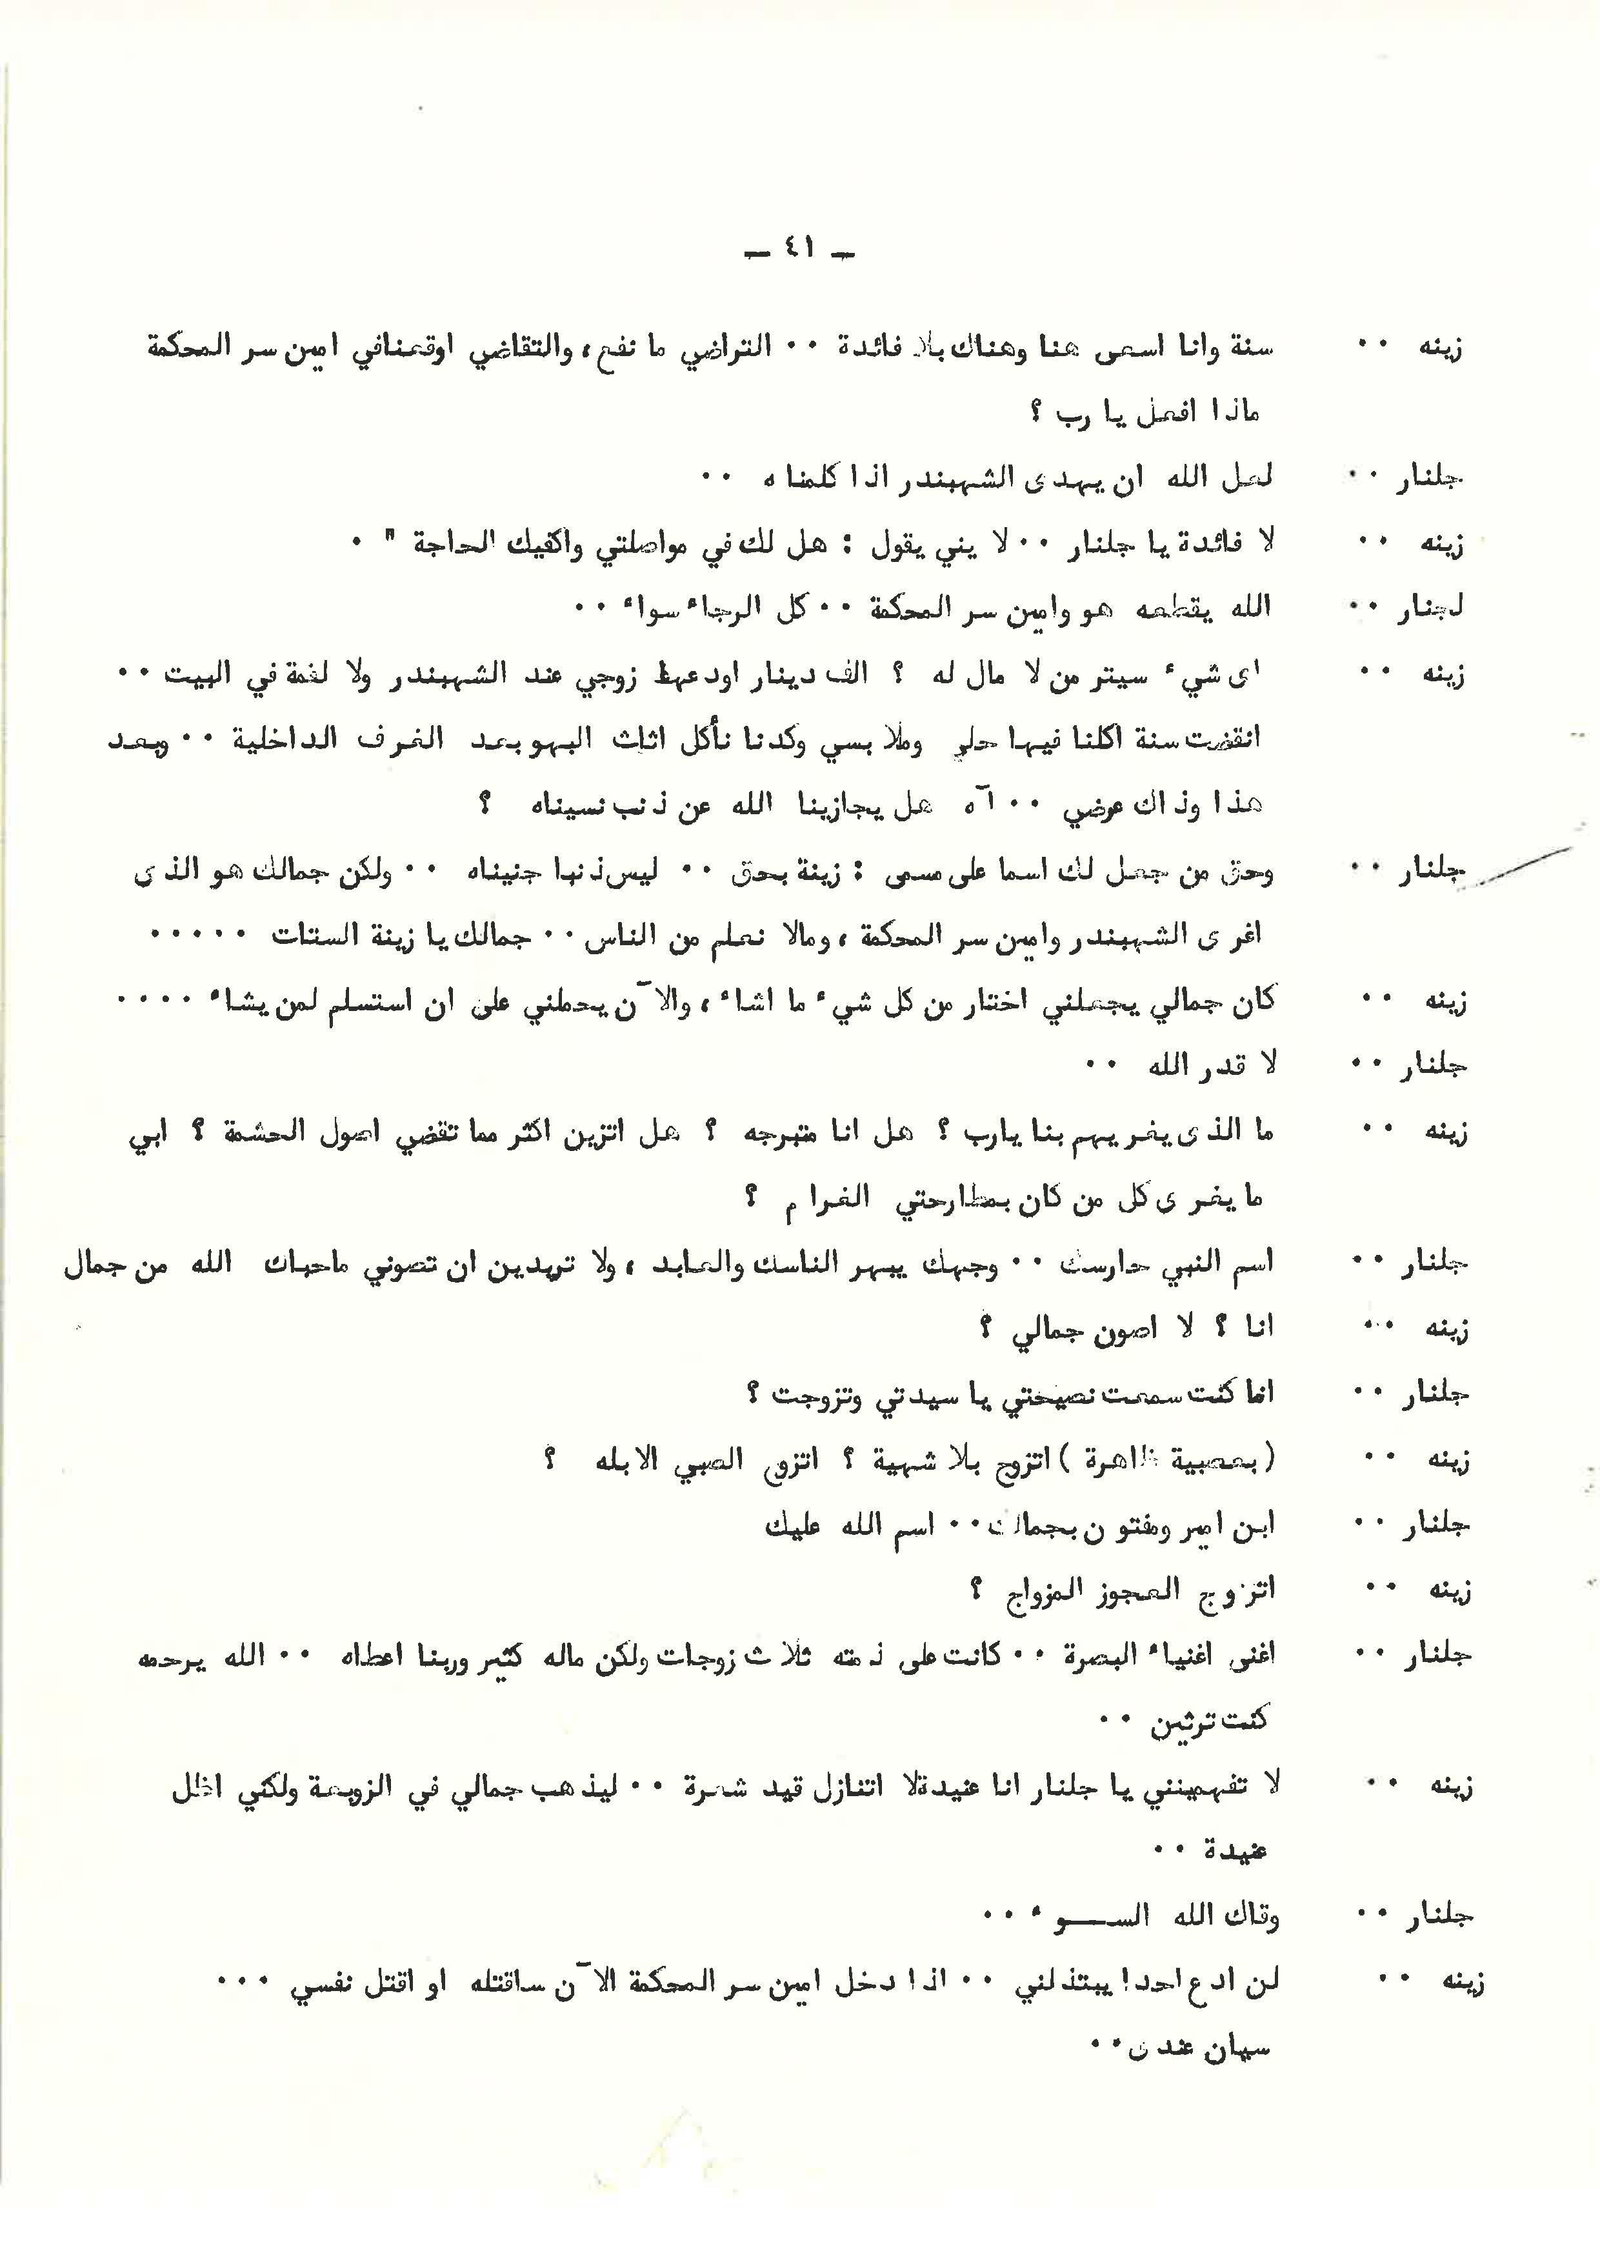 — ٤١ —
زينه ٠٠ سنة وانا اسعى هنا وهناك بلا فائدة ٠٠ التراضي ما نفع ، والتقاضي اوقعنافي امين سر المحكمة
ماذا افعل يا رب ؟
جلنار ٠٠ لعل الله ان يهدى الشهبندر اذا كلمناه ٠٠
زينه ٠٠ لا فائدة يا جلنار ٠٠ لا يني يقول : هل لك في مواصلتي واكفيك الحاجة " ٠
لجنار ٠٠ الله يقطعه هو وامين سر المحكمة ٠٠ كل الرجاء سواء ٠٠
زينه ٠٠ اى شيء سيتر من لا مال له ؟ الف دينار اودعها زوجي عند الشهبندر ولا لغمة في البيت ٠٠
انقضت سنة اكلنا فيها حلي وملا بسي وكدنا نأكل اثاث البهو بعد الغرف الداخلية ٠٠ وبعد
هذا وذاك عرضي ٠٠ آه هل يجازينا الله عن ذنب نسيناه ؟
جلنار ٠٠ وحق من جعل لك اسما على مسمى : زينة بحق ٠٠ ليس ذنبا جنيناه ٠٠ ولكن جمالك هو الذى
اغرى الشهبندر وامين سر المحكمة ، ومالا نعلم من الناس ٠٠ جمالك يا زينة الستات ٠٠٠٠٠
زينه ٠٠ كان جمالي يجعلني اختار من كل شيء ما اشاء ، والآن يحملني على ان استسلم لمن يشاء ٠٠٠٠
جلنار ٠٠ لا قدر الله ٠٠
زينه ٠٠ ما الذى يغريهم بنا يارب ؟ هل انا متبرجه ؟ هل اتزين اكثر مما تقضي اصول الحشمة ؟ ابي
ما يغرى كل من كان بمطارحتي الغرام ؟
جلنار ٠٠ اسم النبي حارسك ٠٠ وجهك يبهر الناسك والعابد ، ولا تريدين ان تصوني ماحباك الله من جمال
زينه ٠٠ انا ؟ لا اصون جمالي ؟
جلنار ٠٠ اما كنت سمعت نصيحتي يا سيدتي وتزوجت ؟
زينه ٠٠ ( بعصبية ظاهرة ) اتزوج بلا شهية ؟ اتزوج الصبي الابله ؟
جلنار ٠٠ ابن امير ومفتون بجمالك ٠٠ اسم الله عليك
زينه ٠٠ اتزوج العجوز المزواج ؟
جلنار ٠٠ اغنى اغنياء البصرة ٠٠ كانت على ذمته ثلاث زوجات ولكن ماله كثير وربنا اعطاه ٠٠ الله يرحمه
كنت ترثين ٠٠
زينه ٠٠ لا تفهمينني يا جلنار انا عنيدةلا اتنازل قيد شعرة ٠٠ ليذهب جمالي في الزوبعة ولكني اظل
عنيدة ٠٠
جلنار ٠٠ وقاك الله الســـوء ٠٠
زينه ٠٠ لن ادع احدا يبتذلني ٠٠ اذا دخل امين سر المحكمة الآن ساقتله او اقتل نفسي ٠٠٠
سيان عندى ٠٠